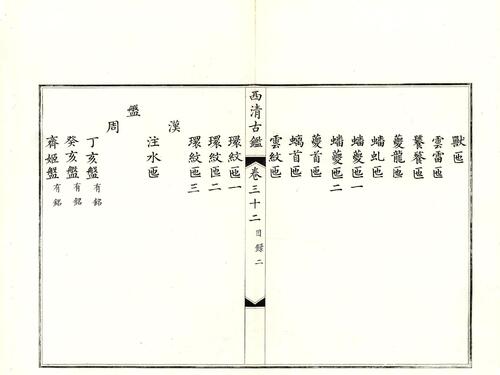 獸匜
雲雷匜
饕餮匜
夔龍匜
蟠虬匜
蟠夔匜一
蟠夔匜二
夔首匜
螭首匜
雲紋匜
西清古鑑 卷三十二 目録 二
環紋匜一
環紋匜二
環紋匜三
漢
注水匜
盤
周
丁亥盤 有銘
癸亥盤 有銘
齊姬盤 有銘